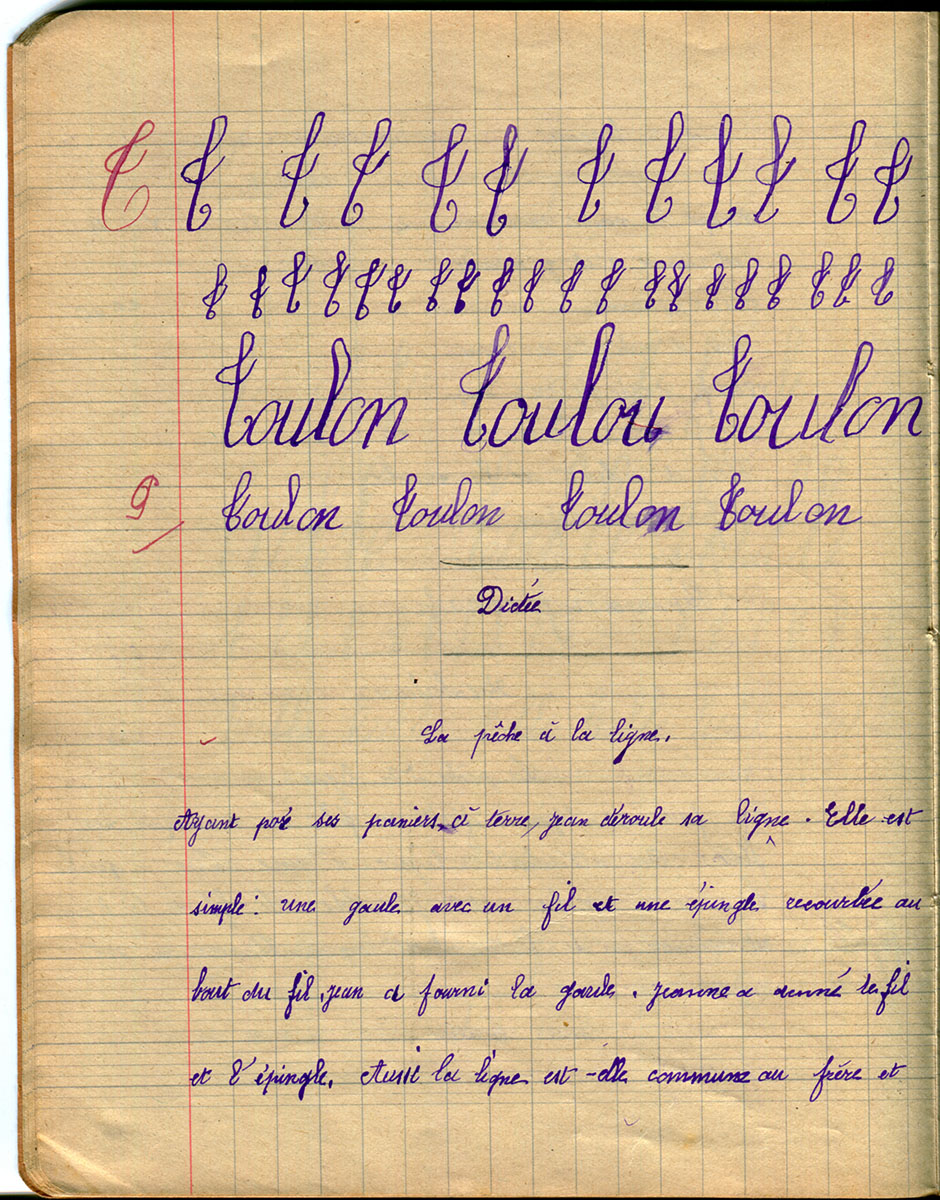 T T T T T T T T T T T T
T T T T T T T T T T T T T T T T T T T T
Toulon Toulou Toulon
9 Toulon Toulon Toulon Toulon
Dictée
La pêche à la ligne.
Ayant posé ses paniers à terre, jean déroule sa ligne. Elle est
simple : une gaule avec un fil et une épingle recourbée au
bout du fil, jean a fourni la gaule. jeanne a donné le fil
et l'épingle. Aussi la ligne est-elle commune au frère et